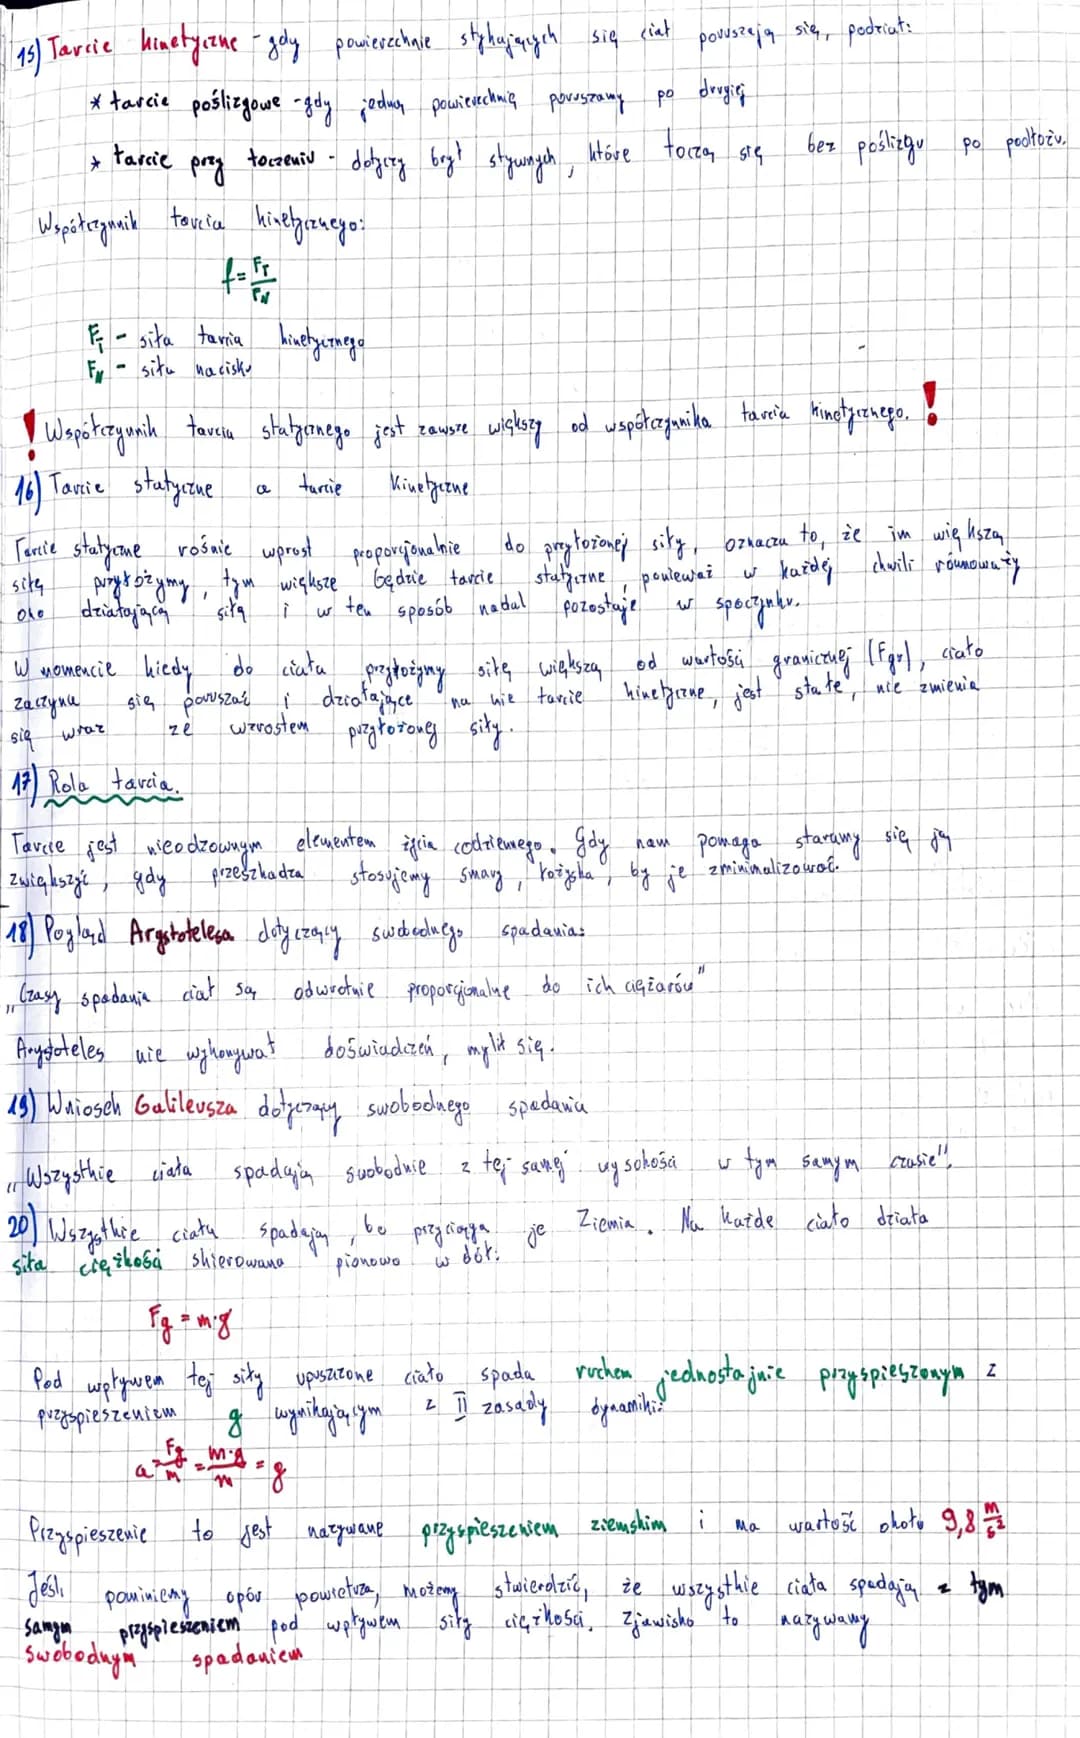 15) Tarcie kinetyczne - gdy powierzchnie stykających się ciał poruszają się, podział:
* tarcie poślizgowe - gdy jedną powierzchnią poruszamy po drugiej
* tarcie przy toczeniu - dotyczy brył sztywnych, które toczą się bez poślizgu po podłożu.
Współczynnik tarcia kinetycznego:
f = F_T / F_N
F_T - siła tarcia kinetycznego
F_N - siła nacisku
! Współczynnik tarcia statycznego jest zawsze większy od współczynnika tarcia kinetycznego. !
16) Tarcie statyczne a tarcie kinetyczne
Tarcie statyczne rośnie wprost proporcjonalnie do przyłożonej siły, oznacza to, że im większą
siłę przyłożymy, tym większe będzie tarcie statyczne, ponieważ w każdej chwili równoważy
ono działającą siłą i w ten sposób nadal pozostaje w spoczynku.
W momencie kiedy do ciała przyłożymy siłę większą od wartości granicznej (Fgr), ciało
zaczyna się poruszać i działające na nie tarcie kinetyczne, jest stałe, nie zmienia
się wraz ze wzrostem przyłożonej siły.
17) Rola tarcia.
Tarcie jest nieodzownym elementem życia codziennego. Gdy nam pomaga staramy się ją
zwiększyć, gdy przeszkadza stosujemy smary, łożyska, by je zminimalizować.
18) Pogląd Arystotelesa dotyczący swobodnego spadania:
„Czasy spadania ciał są odwrotnie proporcjonalne do ich ciężarów"
Arystoteles nie wykonywał doświadczeń, mylił się.
19) Wniosek Galileusza dotyczący swobodnego spadania
„Wszystkie ciała spadają swobodnie z tej samej wysokości w tym samym czasie".
20) Wszystkie ciała spadają, bo przyciąga je Ziemia. Na każde ciało działa
siła ciężkości skierowana pionowo w dół:
Fg = m·g
Pod wpływem tej siły upuszczone ciało spada ruchem jednostajnie przyspieszonym z
przyspieszeniem g wynikającym z II zasady dynamiki:
a = Fg/m = m·g/m = g
Przyspieszenie to jest nazywane przyspieszeniem ziemskim i ma wartość około 9,8 m/s²
Jeśli pominiemy opór powietrza, możemy stwierdzić, że wszystkie ciała spadają z tym
samym przyspieszeniem pod wpływem siły ciężkości. Zjawisko to nazywamy
swobodnym spadaniem